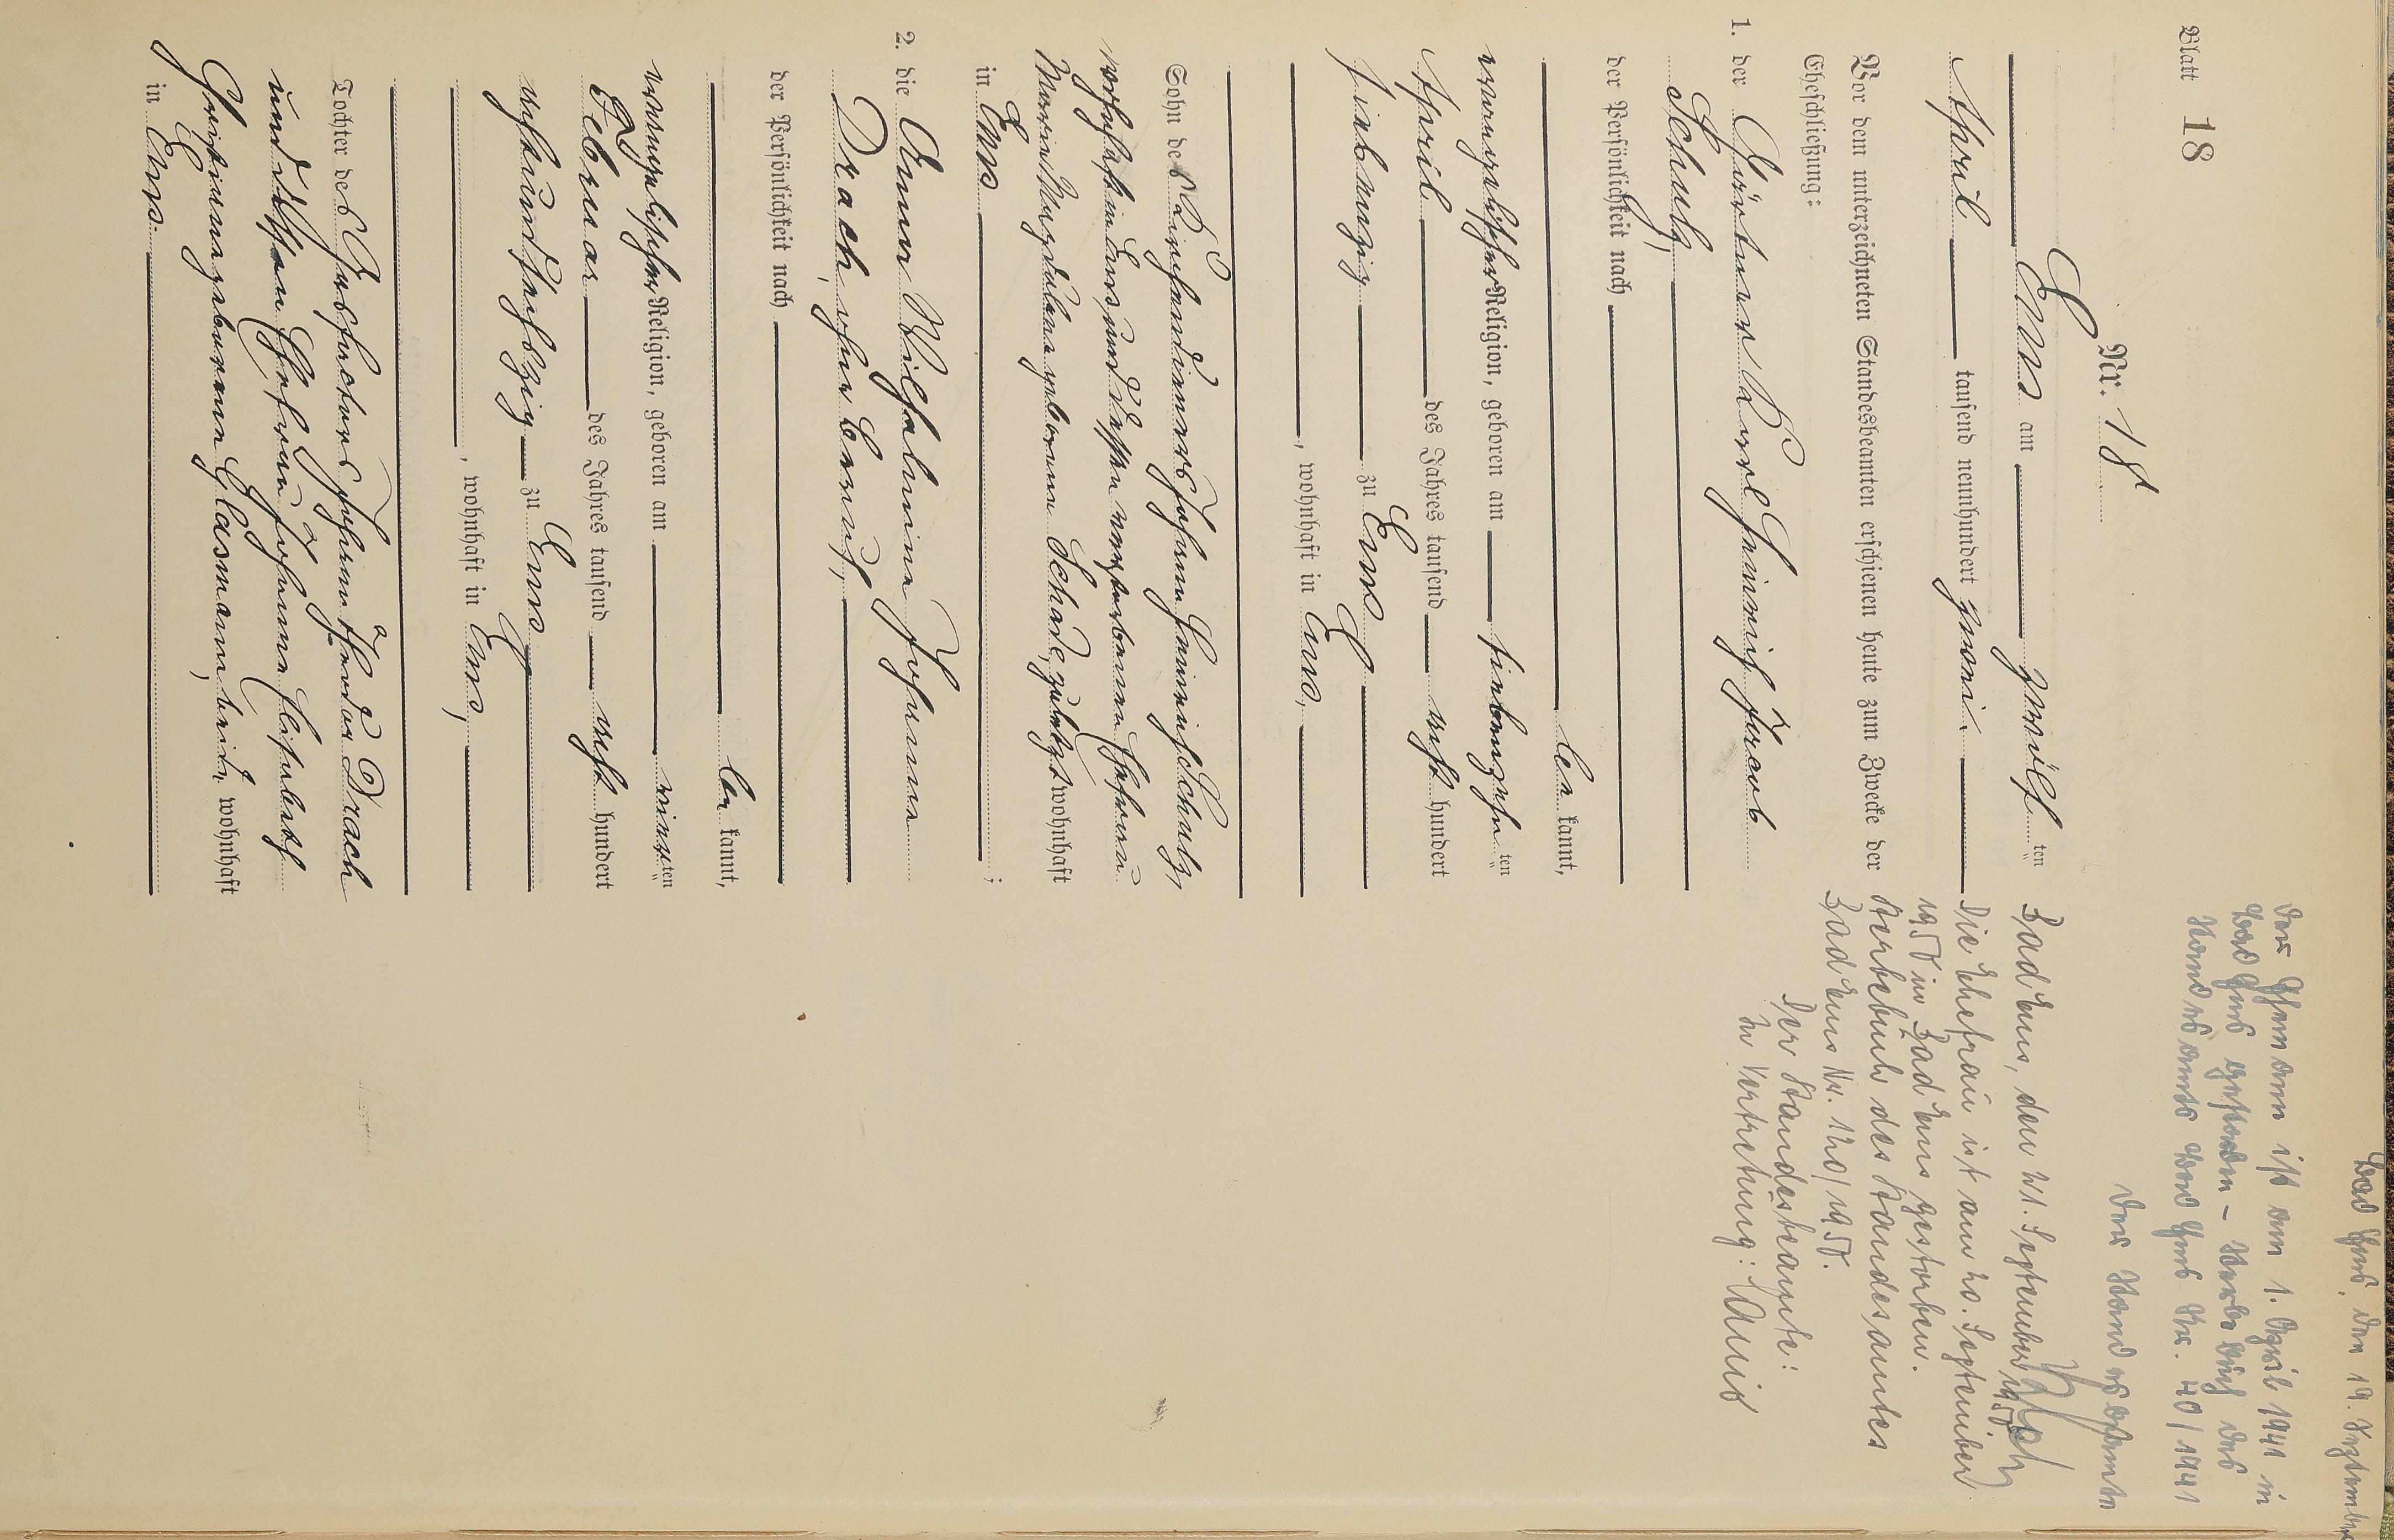 Blatt 18
Nr. 18
Ems am zwölf ten
April tausend neunhundert zwei.
Vor dem unterzeichneten Standesbeamten erschienen heute zum Zwecke der
Eheschließung:
1. der Gärtner Karl Heinrich Jacob
Schulz,
der Persönlichkeit nach
be kannt,
evangelischer Religion, geboren am siebenzehn ten
April des Jahres tausend acht hundert
siebenzig zu Ems
, wohnhaft in Ems,
Sohn des Kirchendieners Johann Heinrich Schulz,
wohnhaft in Ems, und dessen verstorbenen Ehefrau
Marie Magdalena geborene Schade, zuletzt wohnhaft
in Ems ;
2. die Anna Wilhelmine Johanna
Drach, ohne Beruf,
der Persönlichkeit nach
be kannt,
evangelischer Religion, geboren am vier ten
Februar des Jahres tausend acht hundert
achtundsechszig zu Ems
, wohnhaft in Ems,
Tochter des Johann Theodor Drach
und dessen Ehefrau Johanna Elisabeth
Christiane geborene Glasmann, beide wohnhaft
in Ems.
Bad Ems, den 19. September
Der Ehemann ist am 1. April 1941 in
Bad Ems gestorben – Sterbebuch des
Standesamts Bad Ems Nr. 40/1941
Der Standesbeamte
Bad Ems, den 21. September 1950.
Die Ehefrau ist am 20. September
1950 in Bad Ems gestorben.
Sterbebuch des Standesamtes
Bad Ems Nr. 120/1950.
Der Standesbeamte:
In Vertretung: